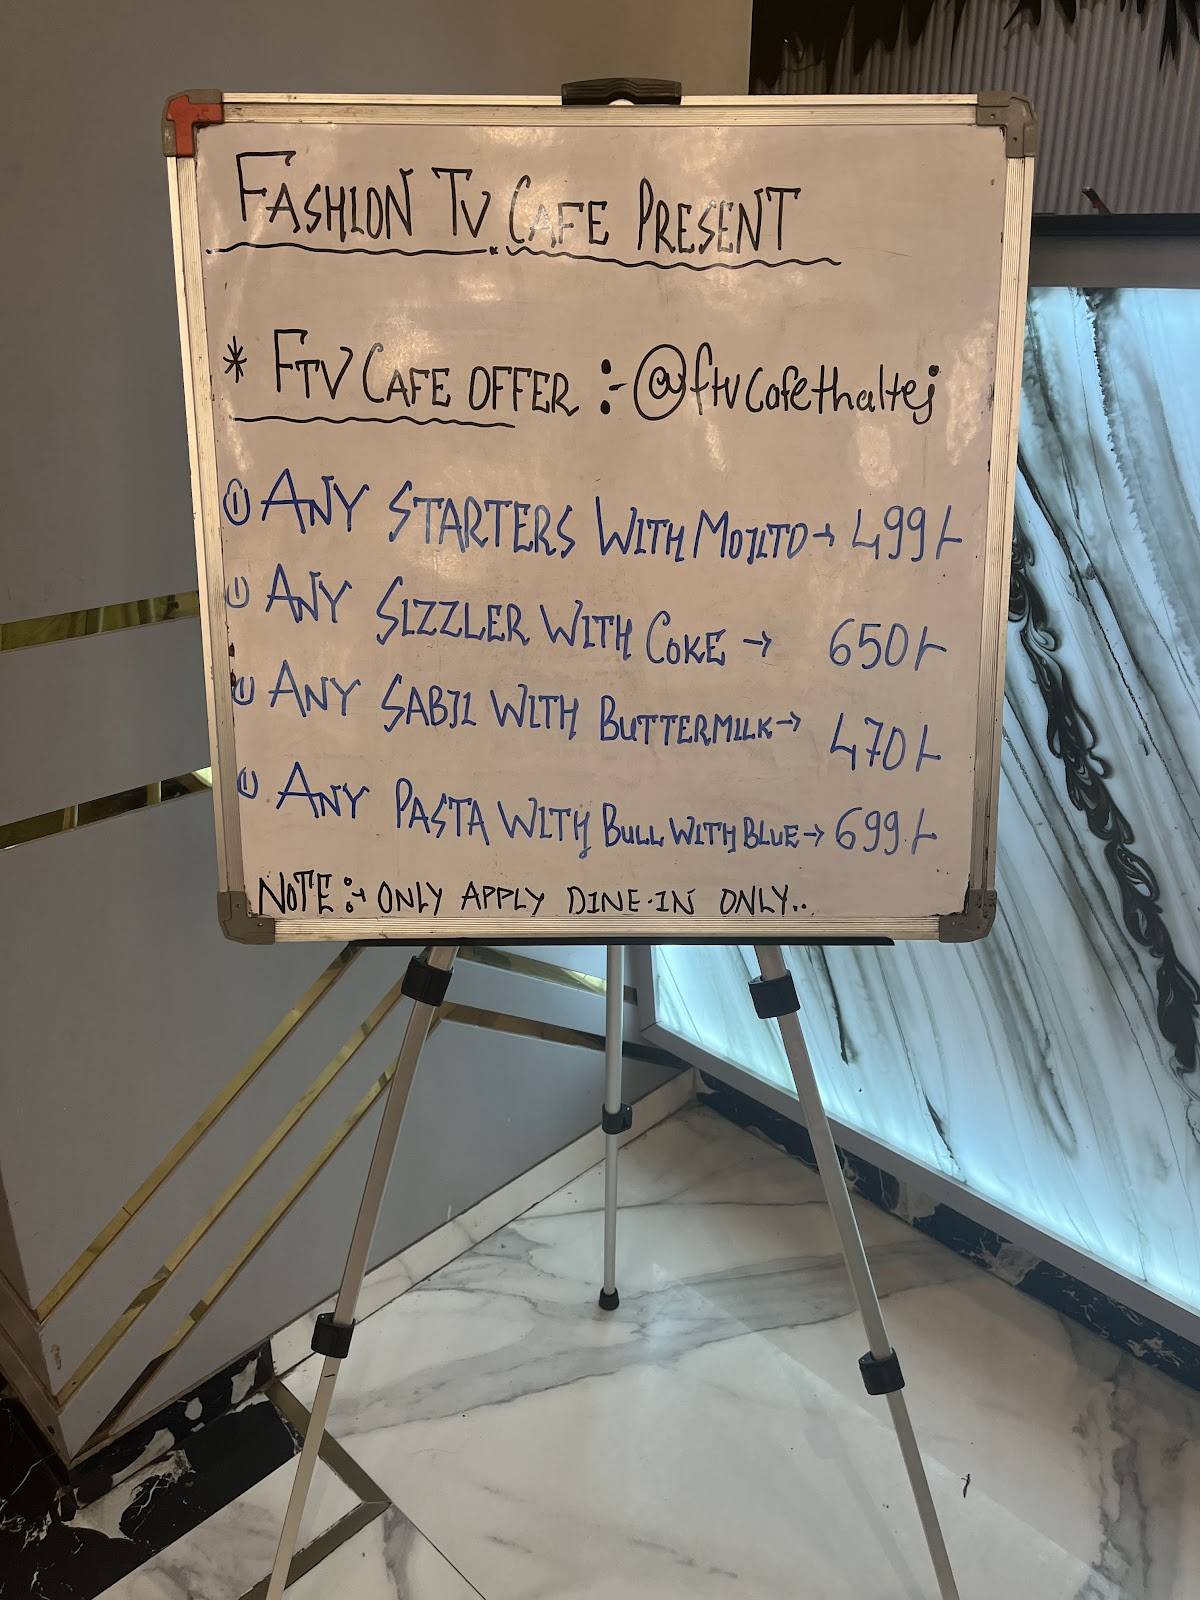 FASHION TV CAFE PRESENT
* FTV CAFE OFFER :- @ftvcafethaltej
① ANY STARTERS WITH MOJITO → 499/-
① ANY SIZZLER WITH COKE → 650/-
① ANY SABJI WITH BUTTERMILK → 470/-
① ANY PASTA WITH BULL WITH BLUE → 699/-
NOTE :- ONLY APPLY DINE-IN ONLY..